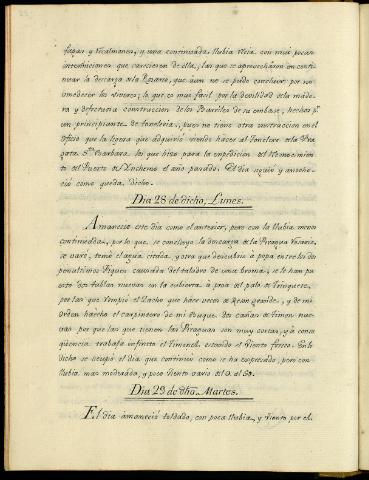 fugas y Ycalmanes, y una continuada llubia recia con mui pocas
intermiciones que carecieron de ella, las que se aprovecharon en conti-
nuar la descarga del Rosario, que aun no se pudo concluir por no
umedecer los viveres; lo que es mui facil por la devilidad de la made-
ra y defectuosa construccion de los Barriles de su embase, hechos pr.
un principiante de toneleria, pues no tiene otra instruccion en el
oficio que la ligera que adquirió viendo hacer al Tonelero de la Fra-
gata Sta. Barbara, los que hizo para la expedicion del Reconocimien-
to del Puerto de Ynchemo el año pasado. El dia siguio y anoche-
ció como queda dicho.
Dia 28 de dicho, Lunes.
Amaneció este dia como el anterior, pero con la llubia menos
continuada, por lo que se concluyo la descarga de la Piragua Rosario,
se varó, tomó el agua citada, y otra que descubrio á popa entre los dos
penultimos Piques causada del taladro de una broma; se le han pu-
esto dos tablas nuevas en la cubierta á proa del palo de Trinquete,
por las que rompio el Macho que hace veces de Guan grande, y de mi
orden hacía el carpintero de mi Buque. Dos cañas de Timon nue-
vas por que las que tienen las Piraguas son muy cortas, y á conse-
qüencia trabaja infinito el Timonel estando el viento fresco. En lo
dicho se ocupó el dia que continuó como se ha expresado, pero con
llubia mas moderada, y poco viento vario del O. al SO.
Dia 29 de dho. Martes.
El dia amaneció toldado, con poca llubia, y viento por el